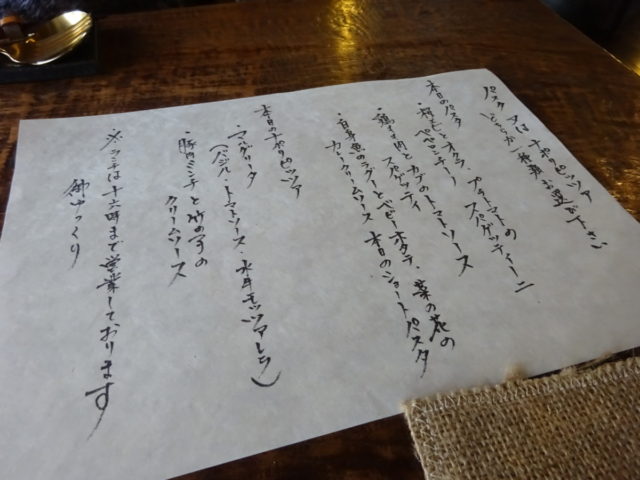 パスタ 又は 十わりピッツァ
どちらか一種類お選び下さい
本日のパスタ
・桜エビ、オクラ、プチトマトの
ペペロンチーノ スパゲッティーニ
・鶏もも肉とカブのトマトソース
スパゲッティ
・白身魚のラグーとベビーホタテ、菜の花の
カレークリームソース 本日のショートパスタ
本日の十わりピッツァ
・マルゲリータ
(バジル・トマトソース・水牛モッツァレラ)
・豚肉ミンチと竹の子の
クリームソース
※ランチは十六時まで営業しております
御ゆっくり